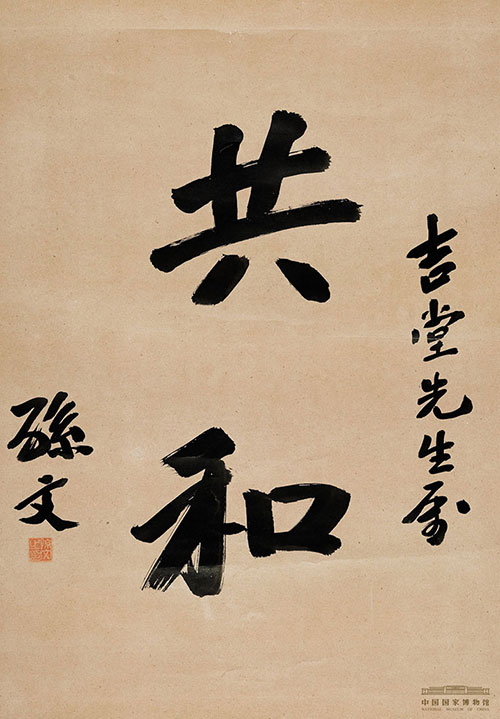 吉堂先生属
共和
孫文
中国国家博物馆
NATIONAL MUSEUM OF CHINA